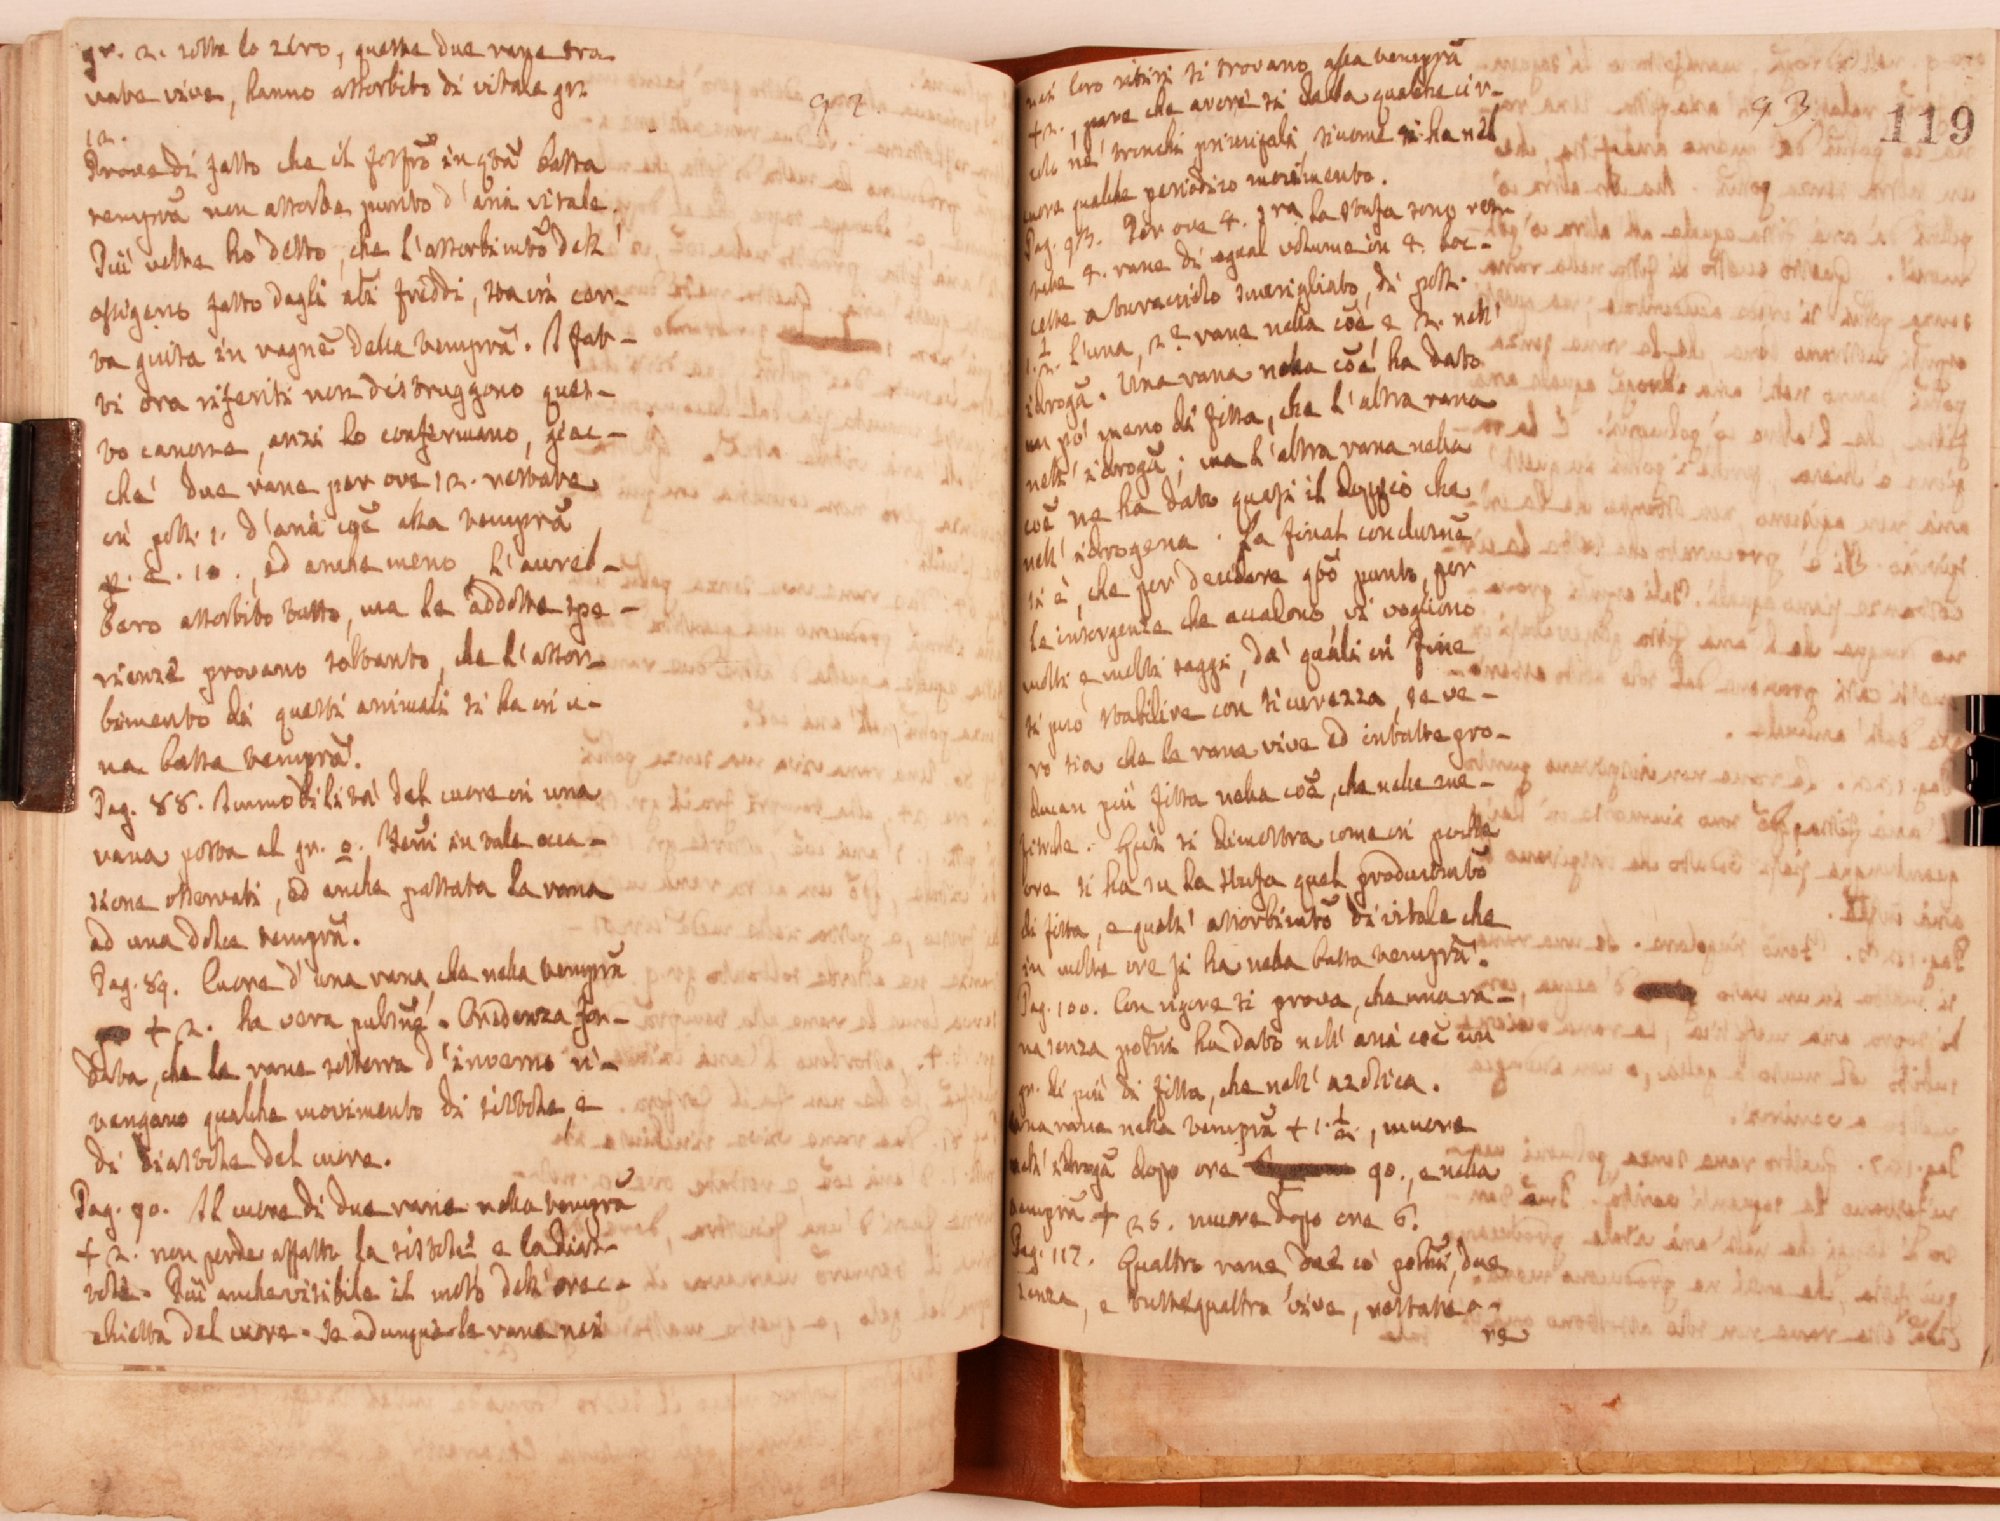 92.
gr. 2. sotto lo zero, queste due rane tro-
vate vive, hanno assorbito di vitale gr:
12.
Prova di fatto che il fosfr̃o in q̃ta bassa
temprã non assorbe punto d'aria vitale.
Più volte ho detto, che l'assorbimt̃o dell'
ossigeno fatto dagli a̅li freddi, sta in cor-
ta giusta in ragne della temprã. I fat-
ti ora riferiti non distruggono ques-
to canone, anzi lo confermano, giac-
chè due rane per ore 12. restate
in poll. 1. d'aria cõe alla temprã
10., ed anche meno, l'avreb-
bero assorbito tutto, ma le addotte spe-
rienze provano soltanto, che l'assor-
bimento di questi animali si ha in u-
na bassa temprã.
Pag. 88. Immobilità del cuore in una
rana posta al gr. 0. Fen̅i in tale occa-
sione osservati, ed anche passata la rana
ad una dolce temprã.
Pag. 89. Cuore d'una rana, che nella temprã
+ 2. ha vera pulsne. Credenza fon-
data, che le rane sotterra d'inverno ri-
tengano qualche movimento di sistole, e
di diastole del cuore.
Pag. 90. Il cuore di due rane nella temprã
+ 2. non perde affatto la sistole, e la dias-
tole. Più anche visibile il moto dell'orec-
chietta del cuore. Se adunque le rane nei
93.
119
nei loro ritiri si trovano alla temprã
+ 2., pare che averesi debba qualche cir-
colo ne' tronchi principali siccome si ha nel
cuore qualche periodico movimento.
Pag. 93. Per ore 4. sra la stufa sono resta-
tate 4. rane di egual volume in 4. boc-
cette a turacciolo smerigliato, di poll.
1. 1/2. l'una, 2 rane nella cõe, e 2. nell'
idrogã. Una rana nella cõe ha dato
un pò meno di fissa, che l'altra rana
nell'idrogã; ma l'altra rana nella
cõe ne ha dato quasi il doppio che
nell'idrogena. La final conclusne
si è, che per decidere q̃to punto, per
le insorgenze che accadono, vi vogliono
molti e molti saggi, da' quali in fine
si può stabilire con sicurezza, se ve-
ro sia che le rane vive ed intatte pro-
ducan più fissa nella cõe, che nelle me-
fitiche. Quì si dimostra come in poche
ore si ha su la stufa quel producimt̃o
di fissa, e quell'assorbimt̃o di vitale che
in molte ore si ha nella bassa temprã.
Pag. 100. Con rigore si prova, che una ra-
na senza polmi ha dato nell'aria cõe un
gr. di più di fissa, che nell'azotica.
Una rana nella temprã + 1. 1/2, muore
nell'idrogã dopo ore 90., e nella
temprã + 25. muore dopo ore 6.
Pag. 117. Quattro rane due co' polmi, due
senza, e tutte quattro vive, restate o-
re